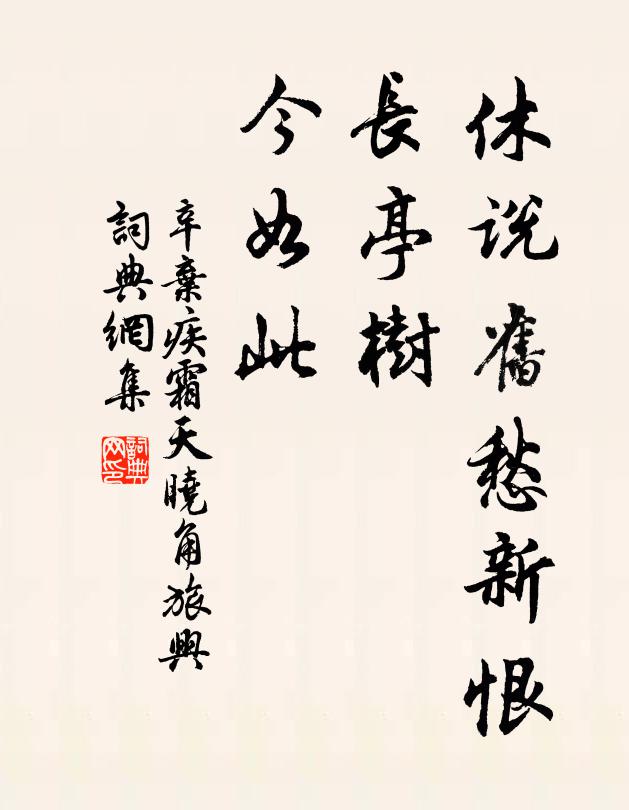 休説舊愁新恨
長亭樹
今如此
辛棄疾霜天曉角旅興
詞典網集
詞典网印